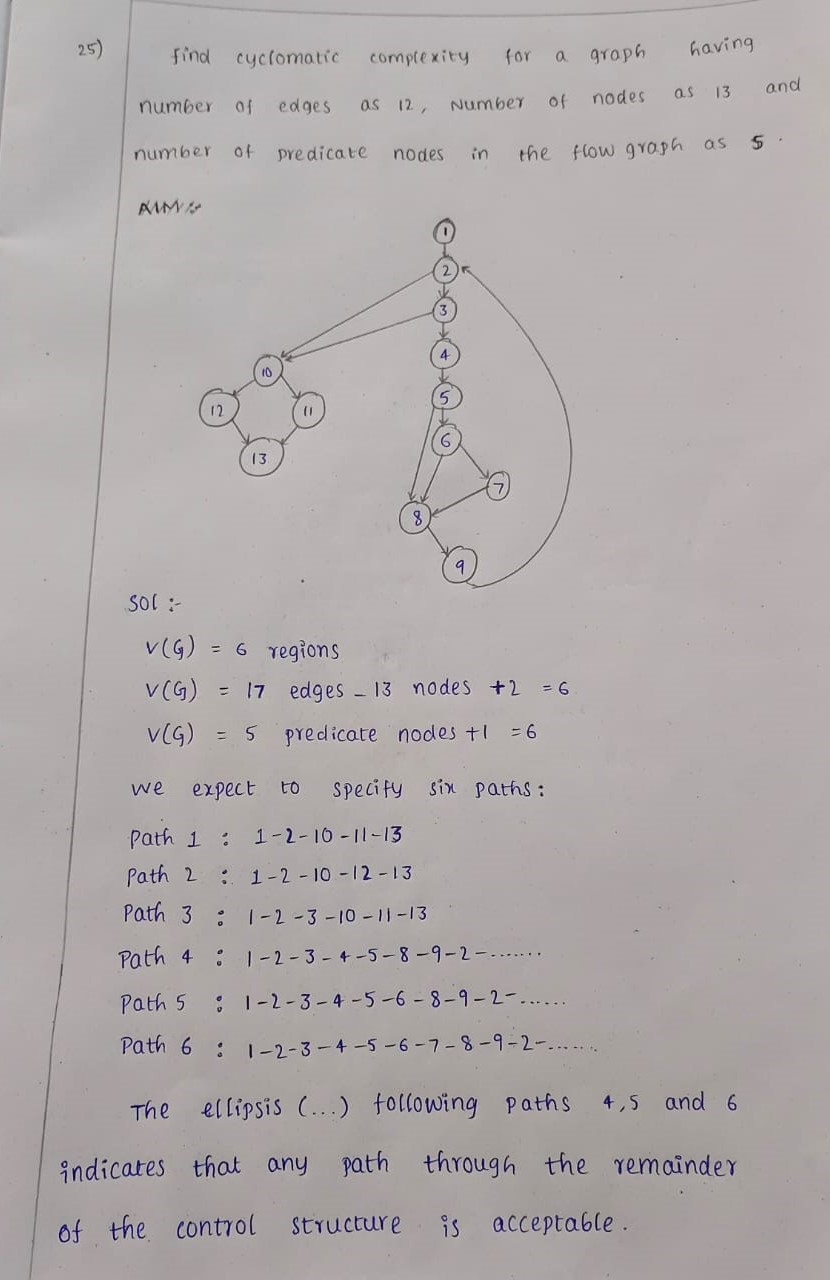 25) find cyclomatic complexity for a graph having
number of edges as 12, Number of nodes as 13 and
number of predicate nodes in the flow graph as 5.
Ans:-
1
2
3
10
4
12
11
5
13
6
7
8
9
Sol :-
V(G) = 6 regions
V(G) = 17 edges - 13 nodes +2 = 6
V(G) = 5 predicate nodes +1 = 6
we expect to specify six paths:
Path 1 : 1-2-10-11-13
Path 2 : 1-2-10-12-13
Path 3 : 1-2-3-10-11-13
Path 4 : 1-2-3-4-5-8-9-2-.......
Path 5 : 1-2-3-4-5-6-8-9-2-......
Path 6 : 1-2-3-4-5-6-7-8-9-2-......
The ellipsis (...) following paths 4,5 and 6
indicates that any path through the remainder
of the control structure is acceptable.